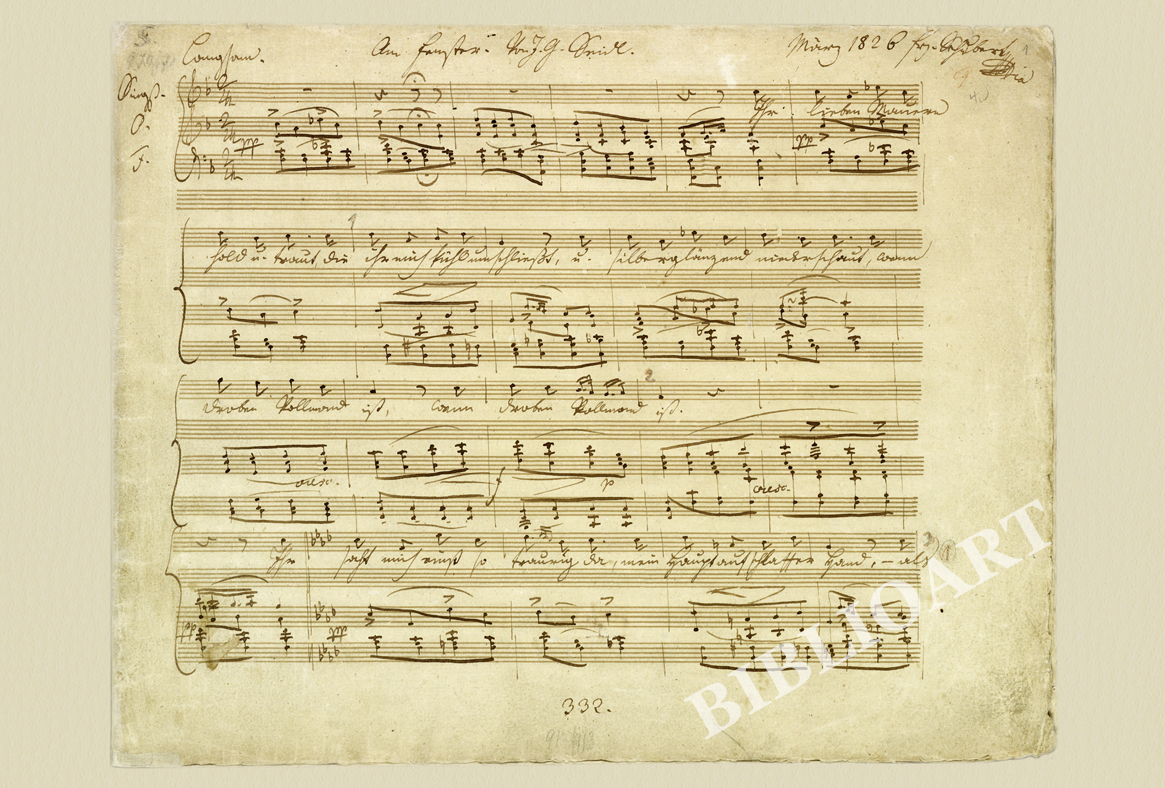 Langsam. Am Fenster. Von J. G. Seidl. März 1826 frz. Schubert
Singst.
pp pp
Ihr lieben Mauern
hold u. traut, die ihr mich kühl umschließt, u. silberglänzend niederschaut, wann
droben Vollmond ist, wann droben Vollmond ist.
cresc. f p cresc.
Ihr saht mich einst so traurig da, mein Haupt auf schlaffer Hand, – als
pp pp
332.
BIBLIOART